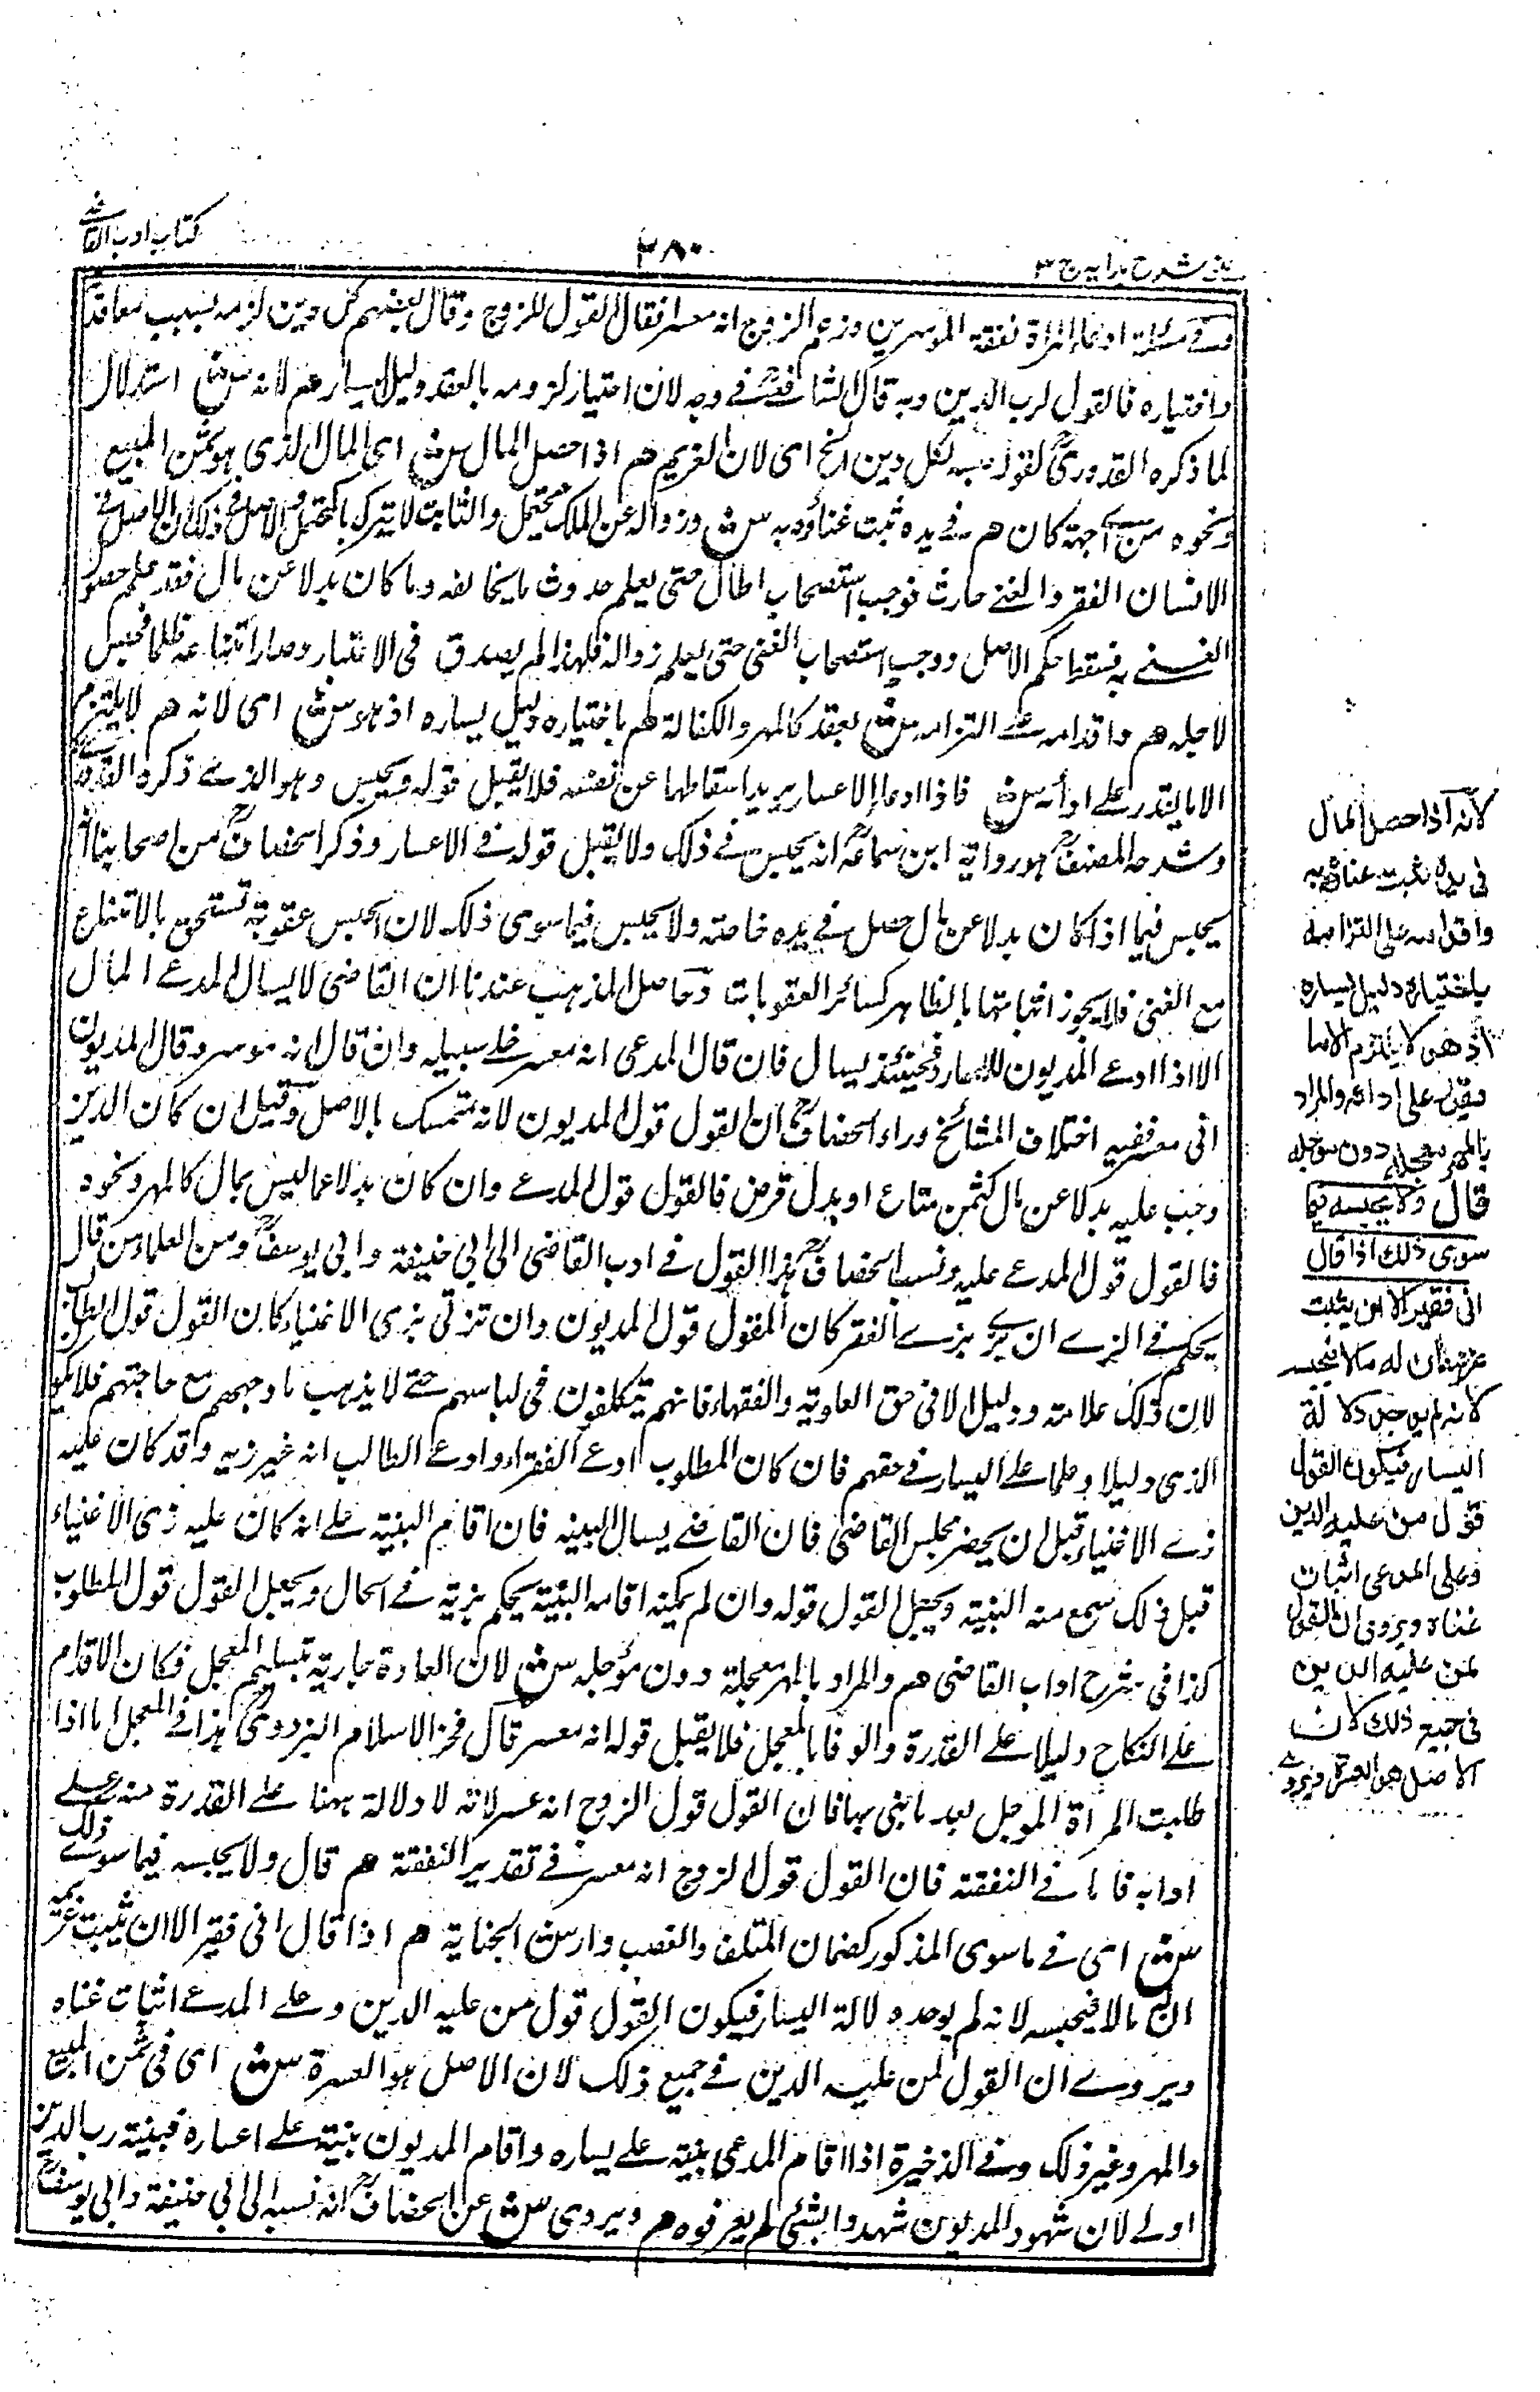 عینی شرح ہدایہ ج ۳
۲۸۰
کتاب ادب القاضے
وفے مسئلة ادعاء المراة نفقة الموسرین وزعم الزوج انہ معسر انقال القول للزوج وقال بعضهم کل دین لزمہ بسبب معاقدة
واختیارہ فالقول لرب الدین وبہ قال الشافعےؒ فے وجہ لان اختیار لزومہ بالعقد دلیل یسارہ هم لانہ ش استدلال
لما ذکرہ القدوریؒ لقولہ حبسہ لکل دین الخ ای لان الغریم هم اذا حصل المال ش ای المال الذی ہو ثمن المبیع
ونحوہ من ای جہة کان هم فے یدہ ثبت غناؤہ بہ ش وزوالہ عن الملک محتمل والثابت لا یترک بالمحتمل والاصل فے ذلک ان الاصل فے
الانسان الفقر والغنے حادث فوجب استصحاب الحال حتی یعلم حدوث ما یخالفہ وما کان بدلا عن مال فقد علم حصول
الغنے بہ فسقط حکم الاصل ووجب استصحاب الغنی حتی یعلم زوالہ فلهذا لم یصدق فی الاعتبار وصار امتناعہ ظلما فحبس
لاجلہ هم واقدامہ علے التزامہ ش بعقد کالمهر والکفالة هم باختیارہ دلیل یسارہ اذ هو ش ای لانہ هم لا یلتزم
الا ما یقدر علے ادائہ ش فاذا ادعا الاعسار یرید اسقاطها عن نفسہ فلا یقبل قولہ ویحبس وہو الذے ذکرہ القدوری
وشرحہ المصنفؒ ہو روایة ابن سماعةؒ انہ یحبس فے ذلک ولا یقبل قولہ فے الاعسار وذکر الخصافؒ من اصحابنا انہ
یحبس فیما اذا کان بدلا عن مال حصل فے یدہ خاصة ولا یحبس فیما سوی ذلک لان الحبس عقوبة تستحق بالامتناع
مع الغنی فلا یجوز اثباتها بالظاہر کسائر العقوبات وحاصل المذہب عندنا ان القاضی لا یسال المدعے المال
الا اذا ادعے المدیون الاعسار فحینئذ یسال فان قال المدعی انہ معسر خلے سبیلہ وان قال انہ موسر وقال المدیون
انی معسر ففیہ اختلاف المشائخ وراء الخصافؒ ان القول قول المدیون لانہ متمسک بالاصل وقیل ان کان الدین
وجب علیہ بدلا عن مال کثمن متاع او بدل قرض فالقول قول المدعے وان کان بدلا عما لیس بمال کالمهر ونحوہ
فالقول قول المدعے علیہ ونسب الخصافؒ هذا القول فے ادب القاضی الی ابی حنیفة وابی یوسفؒ ومن العلماء من قال
یحکم فے الزے ان تزیے بزے الفقر کان القول قول المدیون وان تزتی بزی الاغنیاء کان القول قول الطالب
لان ذلک علامة ودلیل الا فی حق العلویة والفقهاء فانهم یتکلفون فی لباسهم حتے لا یذہب ماء وجههم مع حاجتهم فلا یکون
الزی دلیلا وعلما علے الیسار فے حقهم فان کان المطلوب ادعے الفقراء وادعے الطالب انہ غیر زیہ وقد کان علیہ
زے الاغنیاء قبل ان یحضر مجلس القاضی فان القاضے یسال البینہ فان اقام البینة علے انہ کان علیہ زی الاغنیاء
قبل ذلک سمع منہ البینة ویجعل القول قولہ وان لم یمکنہ اقامہ البینة یحکم بزیہ فے الحال ویجعل القول قول المطلوب
کذا فی شرح اداب القاضی هم والمراد بالمهر معجلة دون مؤجلہ ش لان العادة جاریة بتسلیم المعجل فکان الاقدام
علے النکاح دلیلا علے القدرة والوفا بالمعجل فلا یقبل قولہ انہ معسر قال فخر الاسلام البزدویؒ هذا فے المعجل اما اذا
طلبت المراة الموجل بعد ما بنی بها فان القول قول الزوج انہ عسر لانہ لا دلالة ههنا علے القدرة منہ علے
ادایہ فاما فے النفقة فان القول قول الزوج انہ معسر فے تقدیر النفقة هم قال ولا یحبسہ فیما سوے ذلک
ش ای فے ما سوی المذکور کضمان المتلف والغصب وارش الجنایة هم اذا قال انی فقیر الا ان یثبت غریمہ
ان لہ مالا فیحبسہ لانہ لم یوجد دلالة الیسار فیکون القول قول من علیہ الدین وعلے المدعے اثبات غناہ
ویروے ان القول لمن علیہ الدین فے جمیع ذلک لان الاصل ہو العسرة ش ای فی ثمن المبیع
والمهر وغیر ذلک وفے الذخیرة اذا اقام المدعی بینة علے یسارہ واقام المدیون بینة علے اعسارہ فبینة رب الدین
اولے لان شهود المدیون شهدوا بشئ لم یعرفوہ هم ویروی ش عن الخصافؒ انہ نسبہ الی ابی حنیفة وابی یوسفؒ
لانہ اذا حصل المال
فی یدہ ثبت غناؤہ بہ
واقدامہ علی التزامہ
باختیارہ دلیل یسارہ
اذ هو لا یلتزم الا ما
یقدر علی ادائہ والمراد
بالمهر معجلہ دون مؤجلہ
قال ولا یحبسہ فیما
سوی ذلک اذا قال
انی فقیر الا ان یثبت
غریمہ ان لہ مالا فیحبسہ
لانہ لم یوجد دلالة
الیسار فیکون القول
قول من علیہ الدین
وعلی المدعی اثبات
غناہ ویروی ان القول
لمن علیہ الدین
فی جمیع ذلک لان
الاصل هو العسرة ویروے